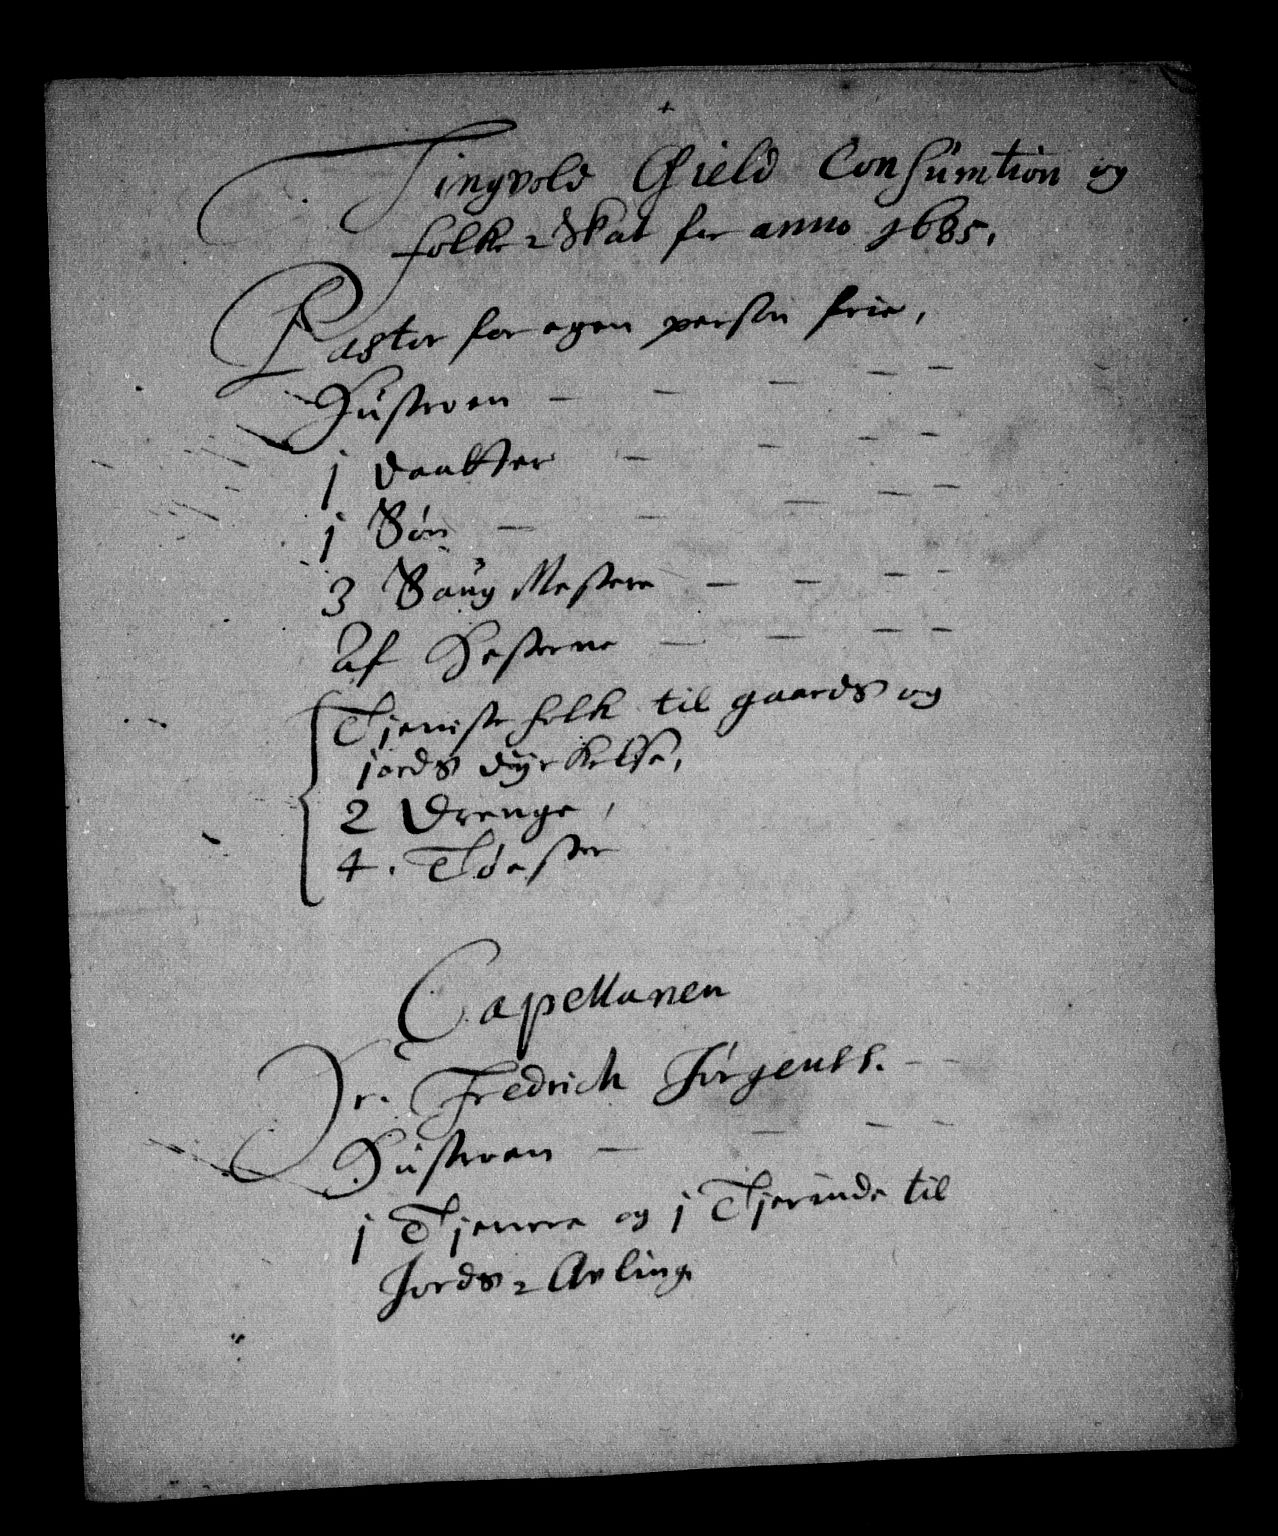 Tingvold Gield Consumtion og
folke Skat for anno 1685.
Pastor for egen person frie,
Hustroen — — — — —
j Daatter — — — —
j Søn — — — — —
3 Saug Mestere — — — —
Af Hesterne — — — —
Tjeniste folk til gaards og
jords dyrkelse,
2 Drenge,
4. Tøeser
Capellanen
Hr. Fredrich Jørgenss. — —
Hustroen — — — —
j Tjenere og j Tjerinde til
Jords Avling